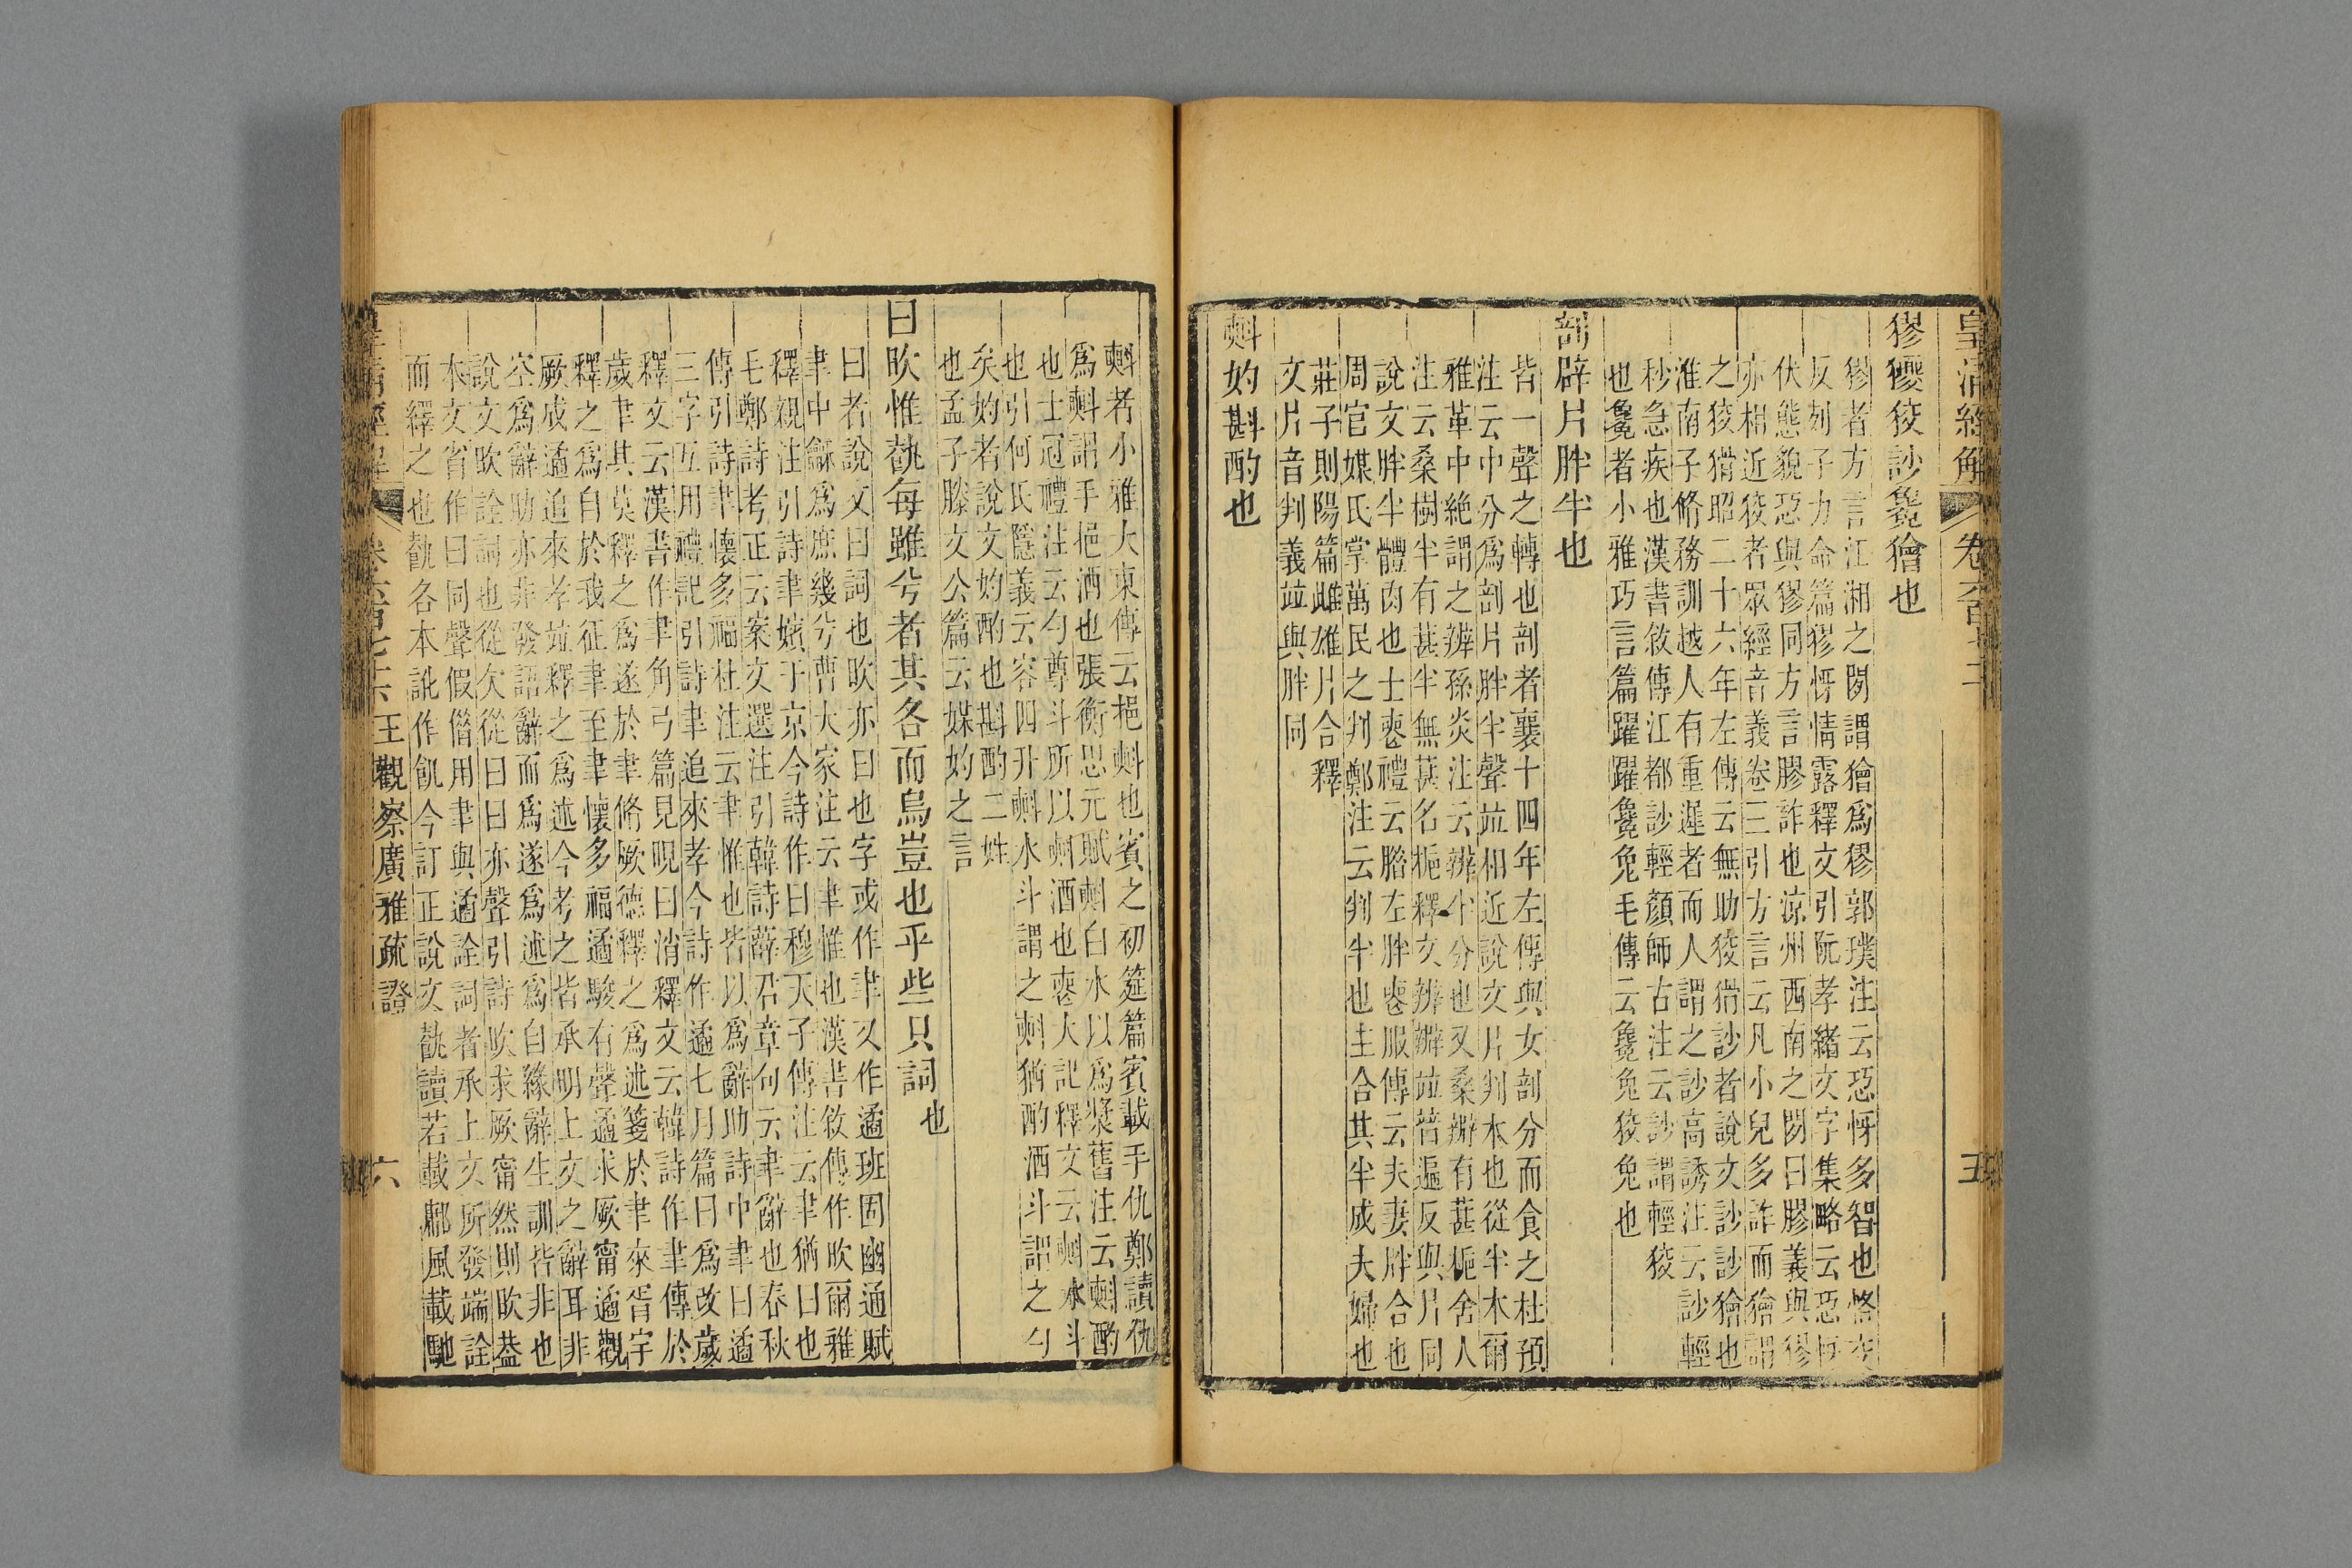 皇清經解 卷六百七十六 五
㺒獿狡訬毚獪也
㺒者方言江湘之閒謂獪爲㺒郭璞注云恐㤉多智也恪交
反列子力命篇㺒㤉情露釋文引阮孝緒文字集略云恐㤉
伏態貌惡與㺒同方言膠詐也涼州西南之閒曰膠義與㺒
亦相近狡者眾經音義卷三引方言云凡小兒多詐而獪謂
之狡猾昭二十六年左傳云無助狡猾訬者說文訬訬獪也
淮南子脩務訓越人有重遲者而人謂之訬高誘注云訬輕
秒急疾也漢書敘傳江都訬輕顏師古注云訬謂輕狡
也毚者小雅巧言篇躍躍毚兔毛傳云毚兔狡兔也
剖辟片胖半也
皆一聲之轉也剖者襄十四年左傳與女剖分而食之杜預
注云中分爲剖片胖半聲竝相近說文片判木也從半木爾
雅革中絶謂之辨孫炎注云辨半分也又桑辨有葚梔舍人
注云桑樹半有葚半無葚名梔釋文辨辦竝普遍反與片同
說文胖半體肉也士喪禮云胳左胖喪服傳云夫妻胖合也
周官媒氏掌萬民之判鄭注云判半也主合其半成夫婦也
莊子則陽篇雌雄片合釋
文片音判義竝與胖同
㪺妁斟酌也
㪺者小雅大東傳云挹㪺也賓之初筵篇賓載手仇鄭讀仇
爲㪺謂手挹酒也張衡思元賦㪺白水以爲漿舊注云㪺酌
也士冠禮注云勺尊斗所以㪺酒也喪大記釋文云㪺水斗
也引何氏隱義云容四升㪺水斗謂之㪺猶酌酒斗謂之勺
矣妁者說文妁酌也斟酌二姓
也孟子滕文公篇云媒妁之言
曰欥惟㽎每雖兮者其各而烏豈也乎些只詞也
曰者說文曰詞也欥亦曰也字或作聿又作遹班固幽通賦
聿中龢爲庶幾兮曹大家注云聿惟也漢書敘傳作欥爾雅
釋親注引詩聿嬪于京今詩作曰穆天子傳注云聿猶曰也
毛鄭詩考正云案文選注引韓詩薛君章句云聿辭也春秋
傳引詩聿懷多福杜注云聿惟也皆以爲辭助詩中聿曰遹
三字互用禮記引詩聿追來孝今詩作遹七月篇曰爲改歲
釋文云漢書作聿角弓篇見晛曰消釋文云韓詩作聿傳於
歲聿其莫釋之爲遂於聿脩厥德釋之爲述箋於聿來胥宇
釋之爲自於我征聿至聿懷多福遹駿有聲遹求厥甯遹觀
厥成遹追來孝竝釋之爲述今考之皆承明上文之辭耳非
空爲辭助亦非發語辭而爲遂爲述爲自緣辭生訓皆非也
說文欥詮詞也從欠從曰曰亦聲引詩欥求厥甯然則欥蓋
本文省作曰同聲假借用聿與遹詮詞者承上文所發端詮
而繹之也㽎各本訛作飢今訂正說文㽎讀若載鄘風載馳
皇清經解 卷六百七十六 王觀察廣雅疏證 六